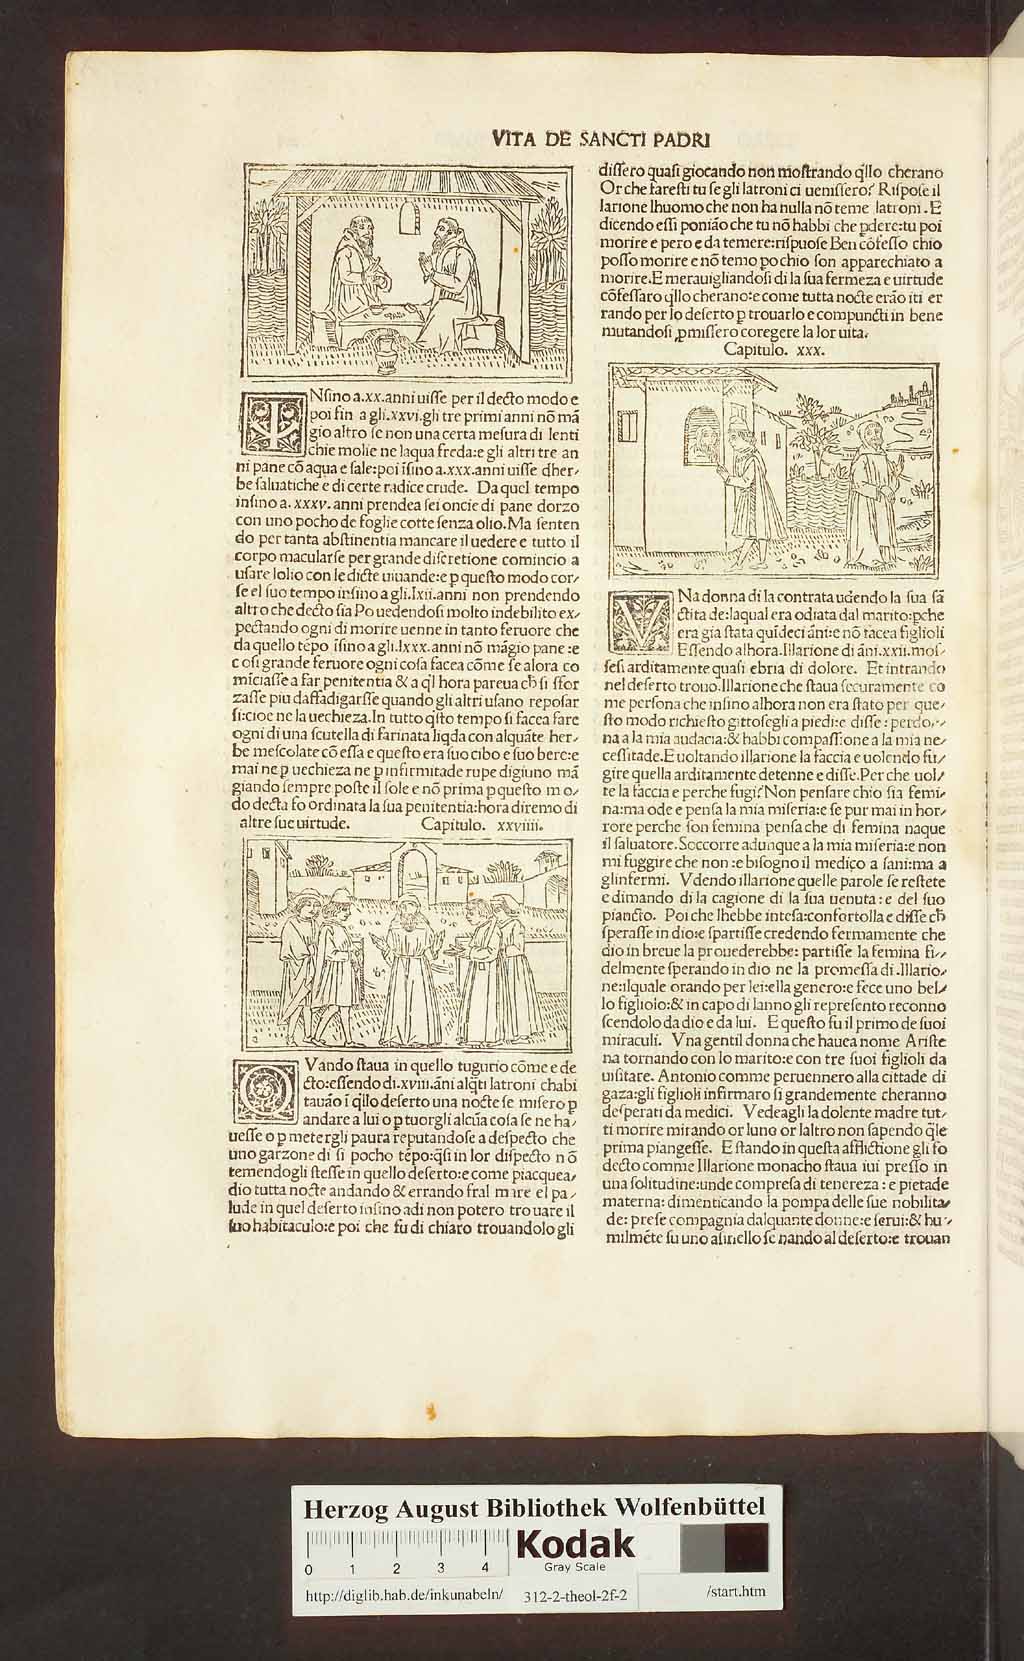 VITA DE SANCTI PADRI
INſino a.xx.anni uiſſe per il decto modo e
poi fin a gli.xxvi.gli tre primi anni nō mā
gio altro ſe non una certa meſura di lenti
chie molle ne laqua freda:e gli altri tre an
ni pane cō aqua e ſale:poi īſino a.xxx.anni uiſſe dher/
be ſaluatiche e di certe radice crude. Da quel tempo
inſino a.xxxv.anni prendea ſei oncie di pane dorzo
con uno pocho de foglie cotte ſenza olio.Ma ſenten
do per tanta abſtinentia mancare il uedere e tutto il
corpo macularſe per grande diſcretione comincio a
uſare lolio con le dicte uiuande:e ꝑ queſto modo cor/
ſe el ſuo tempo inſino a gli.lxii.anni non prendendo
altro che decto ſia Po uedendoſi molto indebilito ex/
pectando ogni di morire uenne in tanto feruore che
da quello tēpo īſino a gli.lxxx.anni nō māgio pane :e
coſi grande feruore ogni coſa facea cōme ſe alora co
miciaſſe a far penitentia & a q̄l hora pareua ch̄ ſi ſfor
zaſſe piu daffadigarſſe quando gli altri uſano repoſar
ſi:cioe ne la uechieza.In tutto q̄ſto tempo ſi facea fare
ogni di una ſcutella di farinata liq̄da con alquāte her/
be meſcolate cō eſſa e queſto era ſuo cibo e ſuo bere:e
mai ne ꝑ uechieza ne ꝑ infirmitade rupe digiuno mā
giando ſempre poſte il ſole e nō prima ꝑ queſto mo/
do decta fo ordinata la ſua penitentia:hora diremo di
altre ſue uirtude. Capitulo. xxviiii.
QVando ſtaua in quello tugurio cōme e de
cto:eſſendo di.xviii.āni alq̄ti latroni chabi
tauāo ī q̄llo deſerto una nocte ſe miſero ꝑ
andare a lui o ꝑ tuorgli alcūa coſa ſe ne ha/
ueſſe o ꝑ metergli paura reputandoſe a deſpecto che
uno garzone di ſi pocho tēpo:q̄ſi in lor diſpecto nō
temendogli ſteſſe in quello deſerto:e come piacque a/
dio tutta nocte andando & errando fral mare el pa/
lude in quel deſerto inſino adi non potero trouare il
ſuo habitaculo:e poi che fu di chiaro trouandolo gli
diſſero quaſi giocando non moſtrando q̄llo cherano
Or che fareſti tu ſe gli latroni ci ueniſſero? Riſpoſe il
larione lhuomo che non ha nulla nō teme latroni.E
dicendo eſſi poniāo che tu nō habbi che ꝑdere:tu poi
morire e pero e da temere:riſpuoſe Ben cōfeſſo chio
poſſo morire e nō temo ꝑochio ſon apparechiato a
morire.E merauigliandoſi di la ſua fermeza e uirtude
cōfeſſaro q̄llo cherano:e come tutta nocte erāo iti er
rando per lo deſerto ꝑ trouarlo e compuncti in bene
mutandoſi ꝓmiſſero coregere la lor uita.
Capitulo. xxx.
VNa donna di la contrata udendo la ſua ſā
ctita de:laqual era odiata dal marito:ꝑche
era gia ſtata quīdeci āni:e nō facea figlioli
Eſſendo alhora.Illarione di āni.xxii.moſ/
ſeſi arditamente quaſi ebria di dolore. Et intrando
nel deſerto trouo.Illarione che ſtaua ſecuramente co
me perſona che inſino alhora non era ſtato per que/
ſto modo richieſto gittoſegli a piedi:e diſſe : perdo/
na a la mia audacia:& habbi compaſſione a la mia ne/
ceſſitade.E uoltando illarione la faccia e uolendo fu/
gire quella arditamente detenne e diſſe.Per che uol/
te la faccia e perche fugi?Non penſare chio ſia femi/
na:ma ode e penſa la mia miſeria:e ſe pur mai in hor/
rore perche ſon femina penſa che di femina naque
il ſaluatore.Soccorre adunque a la mia miſeria:e non
mi fuggire che non :e biſogno il medico a ſani:ma a
glinfermi. Vdendo illarione quelle parole ſe reſtete
e dimando di la cagione di la ſua uenuta : e del ſuo
piancto. Poi che lhebbe inteſa:confortolla e diſſe ch̄
ſperaſſe in dio:e ſpartiſſe credendo fermamente che
dio in breue la prouederebbe: partiſſe la femina fi/
delmente ſperando in dio ne la promeſſa di .Illario/
ne:ilquale orando per lei:ella genero:e fece uno bel/
lo figliolo:& in capo di lanno gli repreſento reconno
ſcendolo da dio e da lui. E queſto fu il primo de ſuoi
miraculi. Vna gentil donna che hauea nome Ariſte
na tornando con lo marito:e con tre ſuoi figlioli da
uiſitare. Antonio comme peruennero alla cittade di
gaza:gli figlioli infirmaro ſi grandemente cheranno
deſperati da medici. Vedeagli la dolente madre tut/
ti morire mirando or luno or laltro non ſapendo q̄le
prima piangeſſe. E ſtando in queſta afflictione gli fo
decto comme Illarione monacho ſtaua iui preſſo in
una ſolitudine:unde compreſa di tenereza : e pietade
materna: dimenticando la pompa delle ſue nobilita/
de: preſe compagnia dalquante donne:e ſerui:& hu/
milmēte ſu uno aſinello ſe nando al deſerto:e trouan
Herzog August Bibliothek Wolfenbüttel
0 1 2 3 4
Kodak
Gray Scale
http://diglib.hab.de/inkunabeln/ 312-2-theol-2f-2 /start.htm